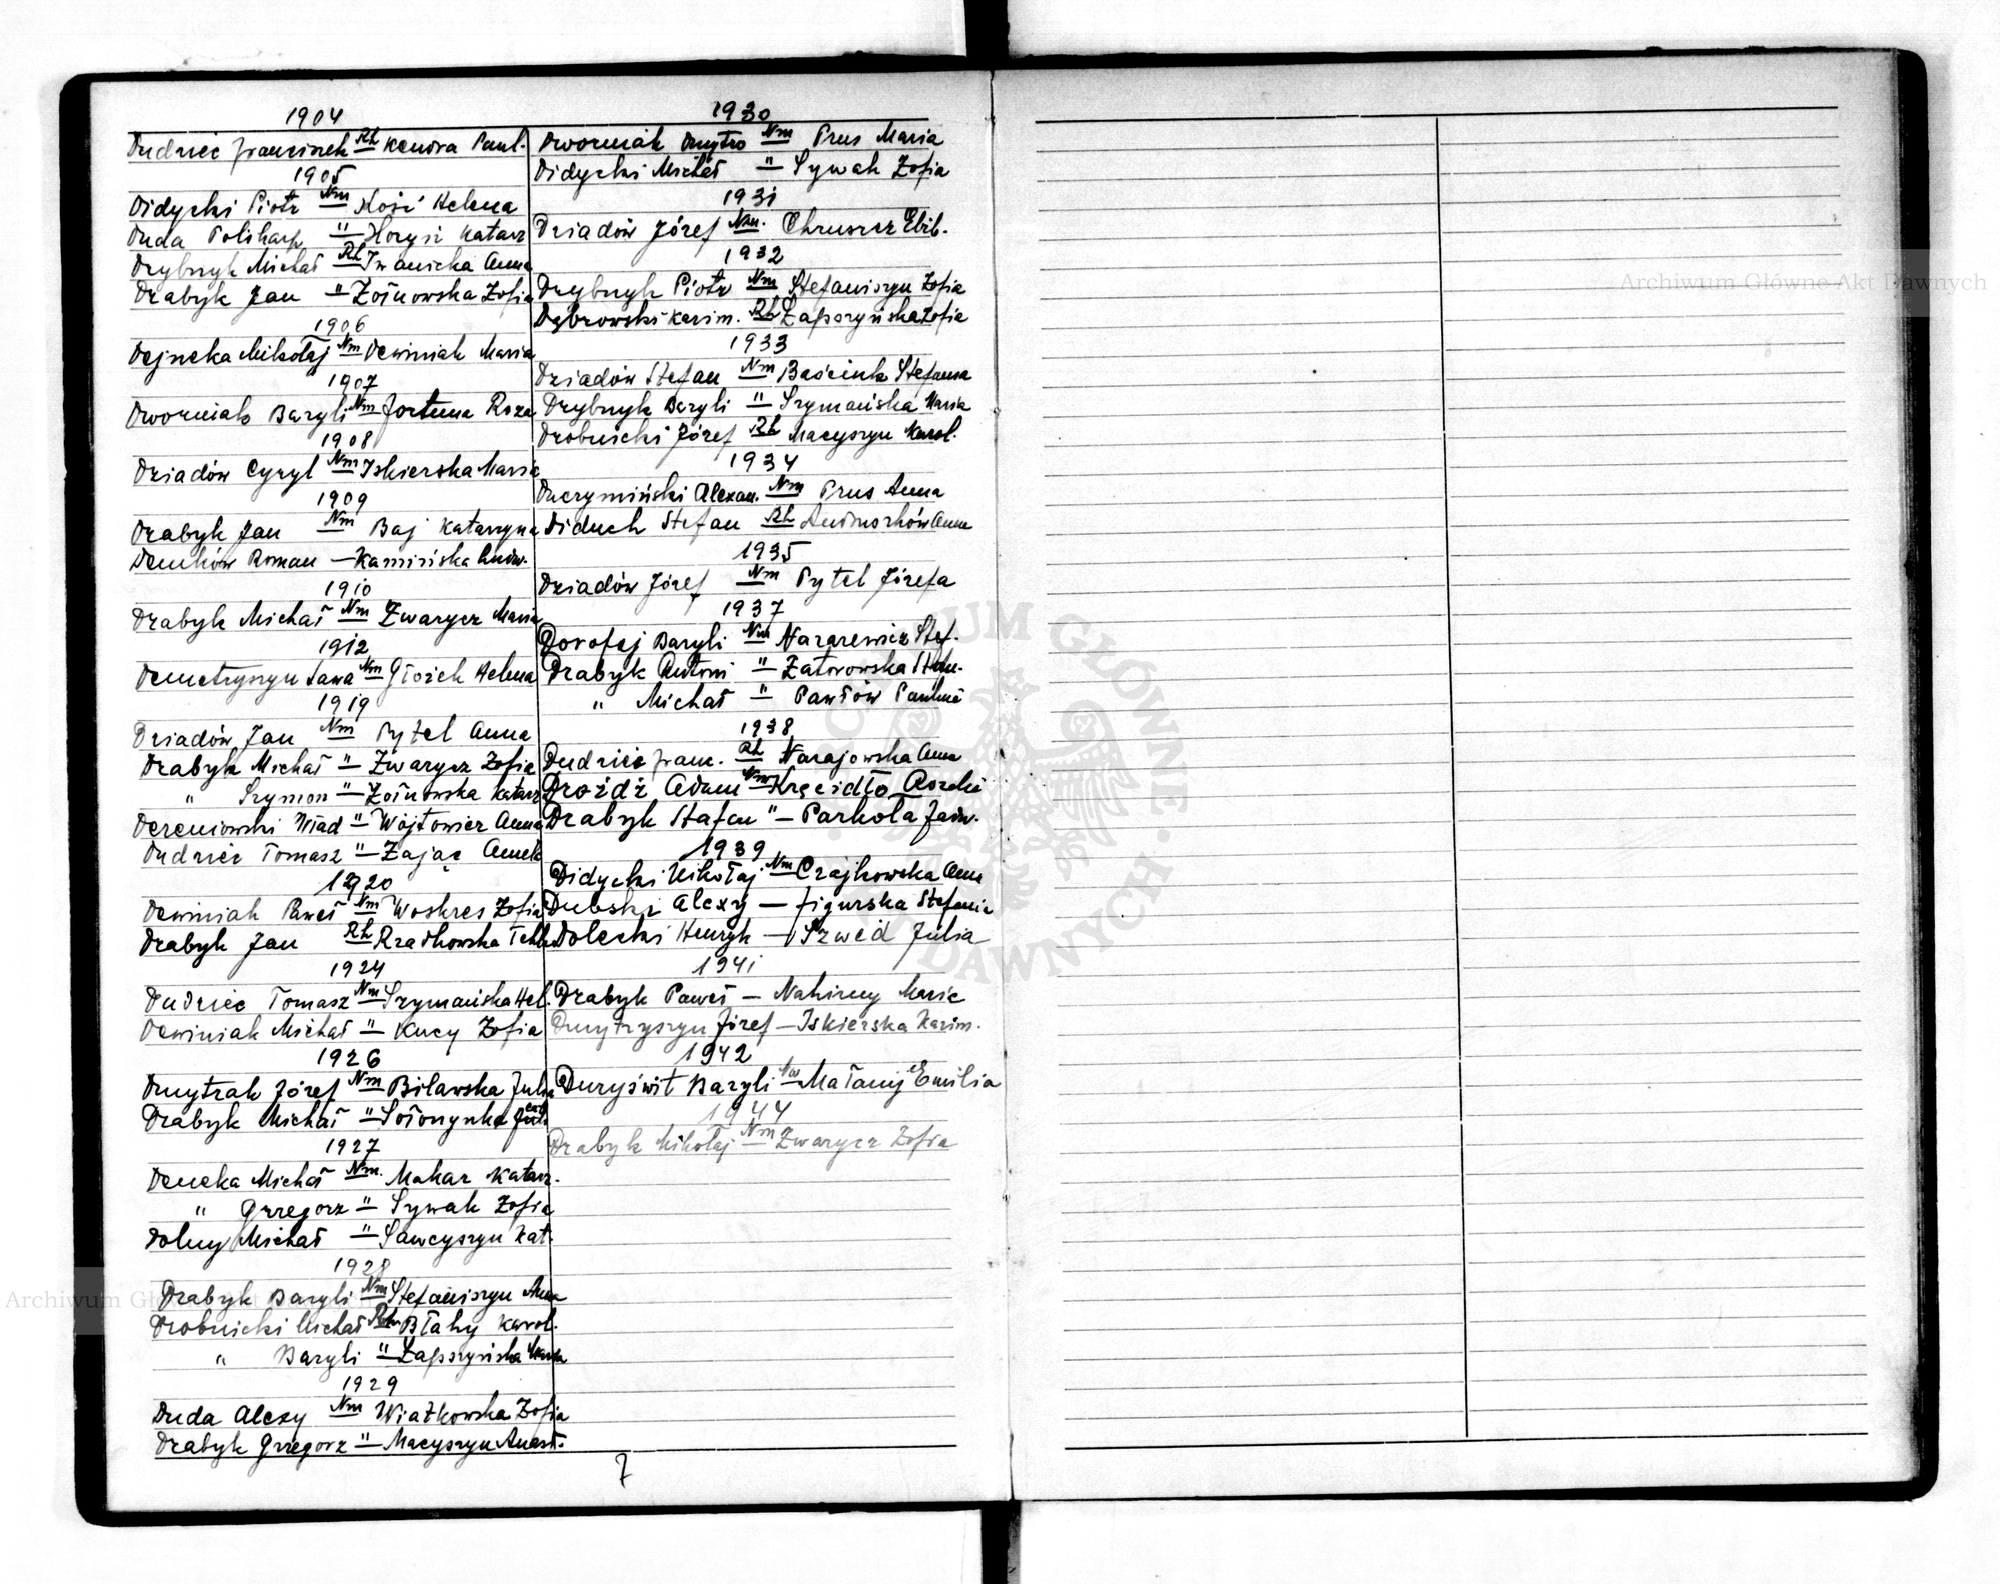 1904
Dudzieć Franciszek Rh Kendra Paul.
1905
Didycki Piotr Nm Kość Helena
Duda Polikarp " Horyśż Katarz
Drybczyk Michał Rh Iwanicka Anna
Drabyk Jan " Żołnowska Zofia
1906
Dejneka Mikołaj Nm Dewiniak Maria
1907
Dworniak Bazyli Nm Fortuna Roza
1908
Dziadów Cyryl Nm Iskierska Maria
1909
Drabyk Jan Nm Baj Katarzyna
Demków Roman — Kamińska Ludw.
1910
Drabyk Michał Nm Zwarycz Maria
1912
Demetryszyn Sawa Nm Głożek Helena
1919
Dziadów Jan Nm Pytel Anna
Drabyk Michał " Zwarycz Zofia
" Szymon " Żołnowska Katarz
Dereniowski Wład " Wójtowicz Anna
Dudzieć Tomasz " Zając Aniela
1920
Dewiniak Paweł Nm Woskres Zofia
Drabyk Jan Rh Rzadkowska Tekla
1924
Dudzieć Tomasz Nm Szymańska Hel.
Dewiniak Michał " Kucy Zofia
1926
Dmytrak Józef Nm Bilawska Julia
Drabyk Michał " Sołonynka
1927
Deneka Michał Nm. Makar Katarz.
" Grzegorz " Sywak Zofia
Dolny Michał " Sawcyszyn Kat.
1928
Drabyk Bazyli Nm Stefaniszyn Anna
Drobnicki Michał Rh Błahy Karol.
" Bazyli " Łapszyńska Maria
1929
Duda Alexy Nm Wiażkowska Zofia
Drabyk Grzegorz " Macyszyn Anast.
1930
Dworniak Dmytro Nm Prus Maria
Didycki Michał " Sywak Zofia
1931
Dziadów Józef Nm. Chruszcz Elżb.
1932
Drybczyk Piotr Nm Stefaniszyn Zofia
Dąbrowski Kazim. Rh Łapszyńska Zofia
1933
Dziadów Stefan Nm Baściuk Stefania
Drybczyk Bazyli " Szymańska Maria
Drobnicki Józef Rh Macyszyn Karol.
1934
Duczymiński Alexan. Nm Prus Anna
Diduch Stefan Rh Andruchów Anna
1935
Dziadów Józef Nm Pytel Józefa
1937
Dorofej Bazyli Nm Nazarewicz Stef.
Drabyk Antoni " Zatorowska Stefan.
" Michał " Pawłów Paulina
1938
Dudzieć Franc. Rh Narajowska Anna
Drożdż Adam Nm Kręcidło Rozalia
Drabyk Stefan " — Parkoła Jadw.
1939
Didycki Mikołaj Nm Czajkowska Anna
Dubski Alexy — Figurska Stefania
Dolecki Henryk — Szwed Julia
1941
Drabyk Paweł — Nahirny Maria
Dmytryszyn Józef — Iskierska Kazim.
1942
Duryświt Bazyli Nw Małanij Emilia
1944
Drabyk Mikołaj Nm Zwarycz Zofia
7
Archiwum Główne Akt Dawnych